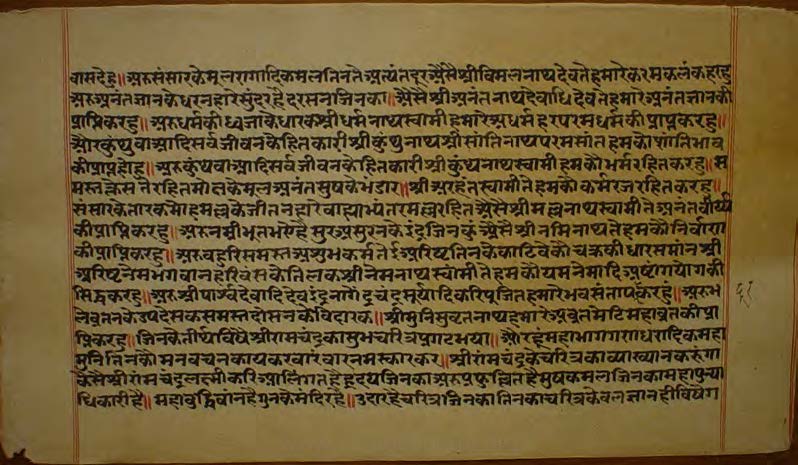 वासदेहु॥अरुसंसारकेमूलरागादिकमलतिनतेअत्यंतदूरअैसेश्रीविमलनाथदेवतेहमारेकरमकलंकहरहु
अरुअनंतज्ञानकेधरनहारेसुंदरहैदरसनजिनका॥अैसेश्रीअनंतनाथदेवाधिदेवतेहमारेअनंतज्ञानकी
प्राप्तिकरहु॥अरुधर्मकीध्वजाकेधारकश्रीधर्मनाथस्वामीहमारेअधर्महरपरमधर्मकीप्राप्तकरहु॥
औरकुंथुवाआदिसर्वजीवनकेहितकारीश्रीकुंथुनाथश्रीसांतिनाथपरमसांतहमकोशांतिभाव
कीप्राप्तहोहु॥अरुकुंथवाआदिसर्वजीवनकेहितकारीश्रीकुंथनाथस्वामीहमकौभर्मरहितकरहु॥स
मस्तक्लेसतेरहितमोक्षकेमूलअनंतसुषकेभंडार॥श्रीअरहंतस्वामीतेहमकौकर्मरजरहितकरहु॥
संसारकेतारकमोहमल्लकेजीतनहारेबाह्याभ्यंतरमलरहितअैसेश्रीमल्लनाथस्वामीतेअनंतवीर्य
कीप्राप्तिकरहु॥अरुनम्रीभूतभएहैसुरअसुरनकेइंद्रजिनकुंअैसेश्रीनमिनाथतेहमकौनिर्वाण
कीप्राप्तिकरहु॥अरुबहुरिसमस्तअशुभकर्मतेईअरिष्टतिनकेकाटिवेकौचक्रकीधारसमानश्री
अरिष्टनेमभगवानहरिवंसकेतिलकश्रीनेमनाथस्वामीतेहमकौयमनेमादिअष्टांगयोगकी
सिद्धकरहु॥अरुश्रीपार्श्वदेवादिदेवइंद्रनागेंद्रचंद्रसूर्यादिकरिपूजितहमारेभवसंतापकरहु॥अरुभ
लेव्रतनकेउपदेसकसमस्तदोसनकेविदारक॥श्रीमुनिसुव्रतनाथहमारेअव्रतमेटिमहाव्रतकीप्रा
प्तिकरहु॥जिनकेतीर्थविषैश्रीरामचंद्रकासुभचरित्रप्रगटभया॥औरहंमहाभागगणधरादिकमहा
मुनितिनकौमनवचनकायकरवारंवारनमस्कारकर॥श्रीरांमचंद्रकेचरित्रकाव्याख्यानकरूंगा
कैसैश्रीरांमचंद्रलक्ष्मीकरिआलिंगतहैहृदयजिनकाअरुप्रफुल्लितहैमुषकमलजिनकामहापुन्या
धिकारीहै॥महाबुद्धिवांनहैगुनकेमंदिरहै॥उदारहैचरित्रजिनकातिनकाचरित्रकेवलज्ञानहीविषैग